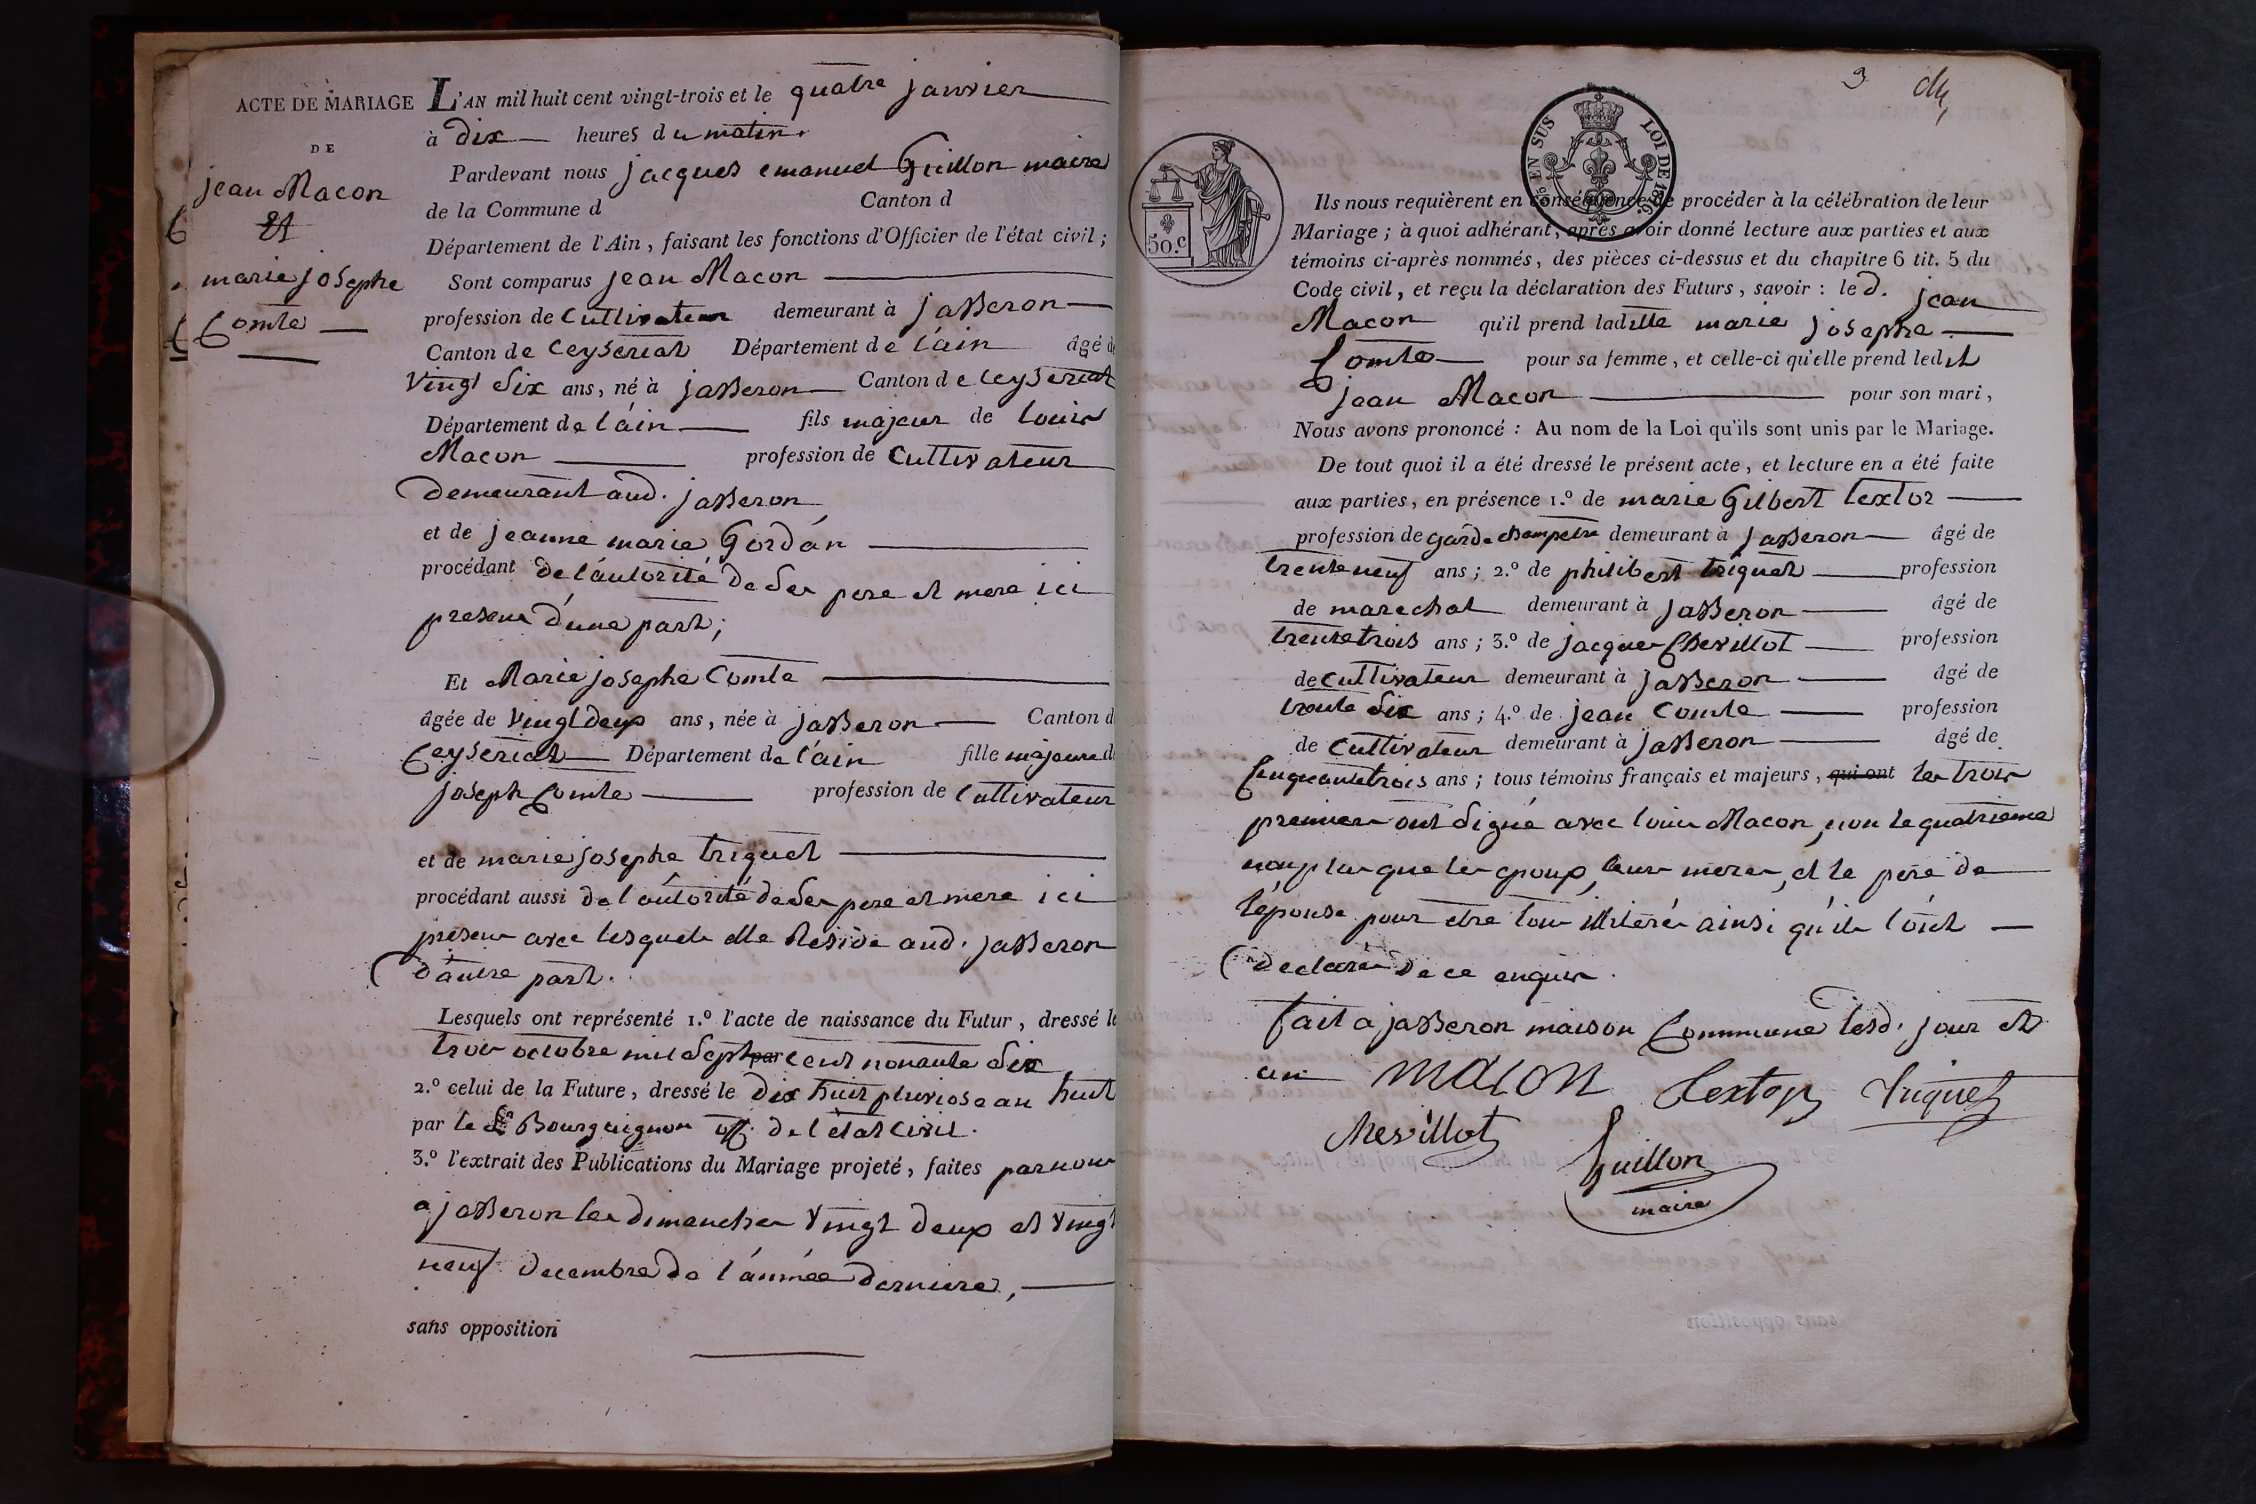 ACTE DE MARIAGE
DE
jean Macon
Et
marie josephe
Comte
L'AN mil huit cent vingt-trois et le quatre janvier
à dix heures du matin.
Pardevant nous jacques emanuel Guillon maire
de la Commune d Canton d
Département de l'Ain, faisant les fonctions d'Officier de l'état civil;
Sont comparus jean Macon
profession de Cultivateur demeurant à jasseron
Canton de Ceyseriat Département de l'ain âgé de
vingt six ans, né à jasseron Canton de Ceyseriat
Département de l'ain fils majeur de louis
Macon profession de Cultivateur
demeurant aud. jasseron
et de jeanne marie Gordan
procédant de l'autorité de ses pere et mere ici
presens d'une part;
Et Marie josephe Comte
âgée de vingt deux ans, née à jasseron Canton d
Ceyseriat Département de l'ain fille majeure de
joseph Comte profession de Cultivateur
et de marie josephe triquet
procédant aussi de l'autorité de ses pere et mere ici
presens avec lesquels elle Reside aud. jasseron
d'autre part.
Lesquels ont représenté 1.º l'acte de naissance du Futur, dressé le
trois octobre mil sept par cent nonante six
2.º celui de la Future, dressé le dix huit pluviose an huit
par le Sr Bourguignon off. de l'état civil.
3.º l'extrait des Publications du Mariage projeté, faites par nous
a jasseron les dimanches vingt deux et vingt
neuf decembre de l'année derniere,
sans opposition
3
25 EN SUS LOI DE 1816.
50.c
Ils nous requièrent en conséquence de procéder à la célébration de leur
Mariage; à quoi adhérant, après avoir donné lecture aux parties et aux
témoins ci-après nommés, des pièces ci-dessus et du chapitre 6 tit. 5 du
Code civil, et reçu la déclaration des Futurs, savoir: le d. jean
Macon qu'il prend ladite marie josephe
Comte pour sa femme, et celle-ci qu'elle prend ledit
jean Macon pour son mari,
Nous avons prononcé: Au nom de la Loi qu'ils sont unis par le Mariage.
De tout quoi il a été dressé le présent acte, et lecture en a été faite
aux parties, en présence 1.º de marie Gilbert textor
profession de garde champetre demeurant à jasseron âgé de
trente neuf ans; 2.º de philibert triquet profession
de marechal demeurant à jasseron âgé de
trente trois ans; 3.º de jacques Chevillot profession
de Cultivateur demeurant à jasseron âgé de
trente six ans; 4.º de jean Comte profession
de Cultivateur demeurant à jasseron âgé de
Cinquante trois ans; tous témoins français et majeurs, qui ont les trois
premiers ont signé avec louis Macon, non le quatrieme
non plus que les epoux, leurs meres, et le pere de
l'épouse pour etre tous illiterés ainsi qu'ils l'ont
declaré de ce enquis.
fait a jasseron maison Commune lesd. jour et
an Macon Textor Triquet
Chevillot
Guillon
maire